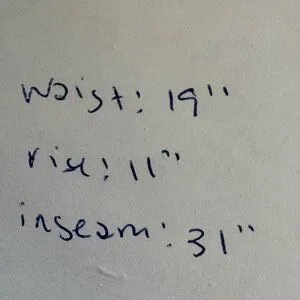 waist: 19"
rise: 11"
inseam: 31"